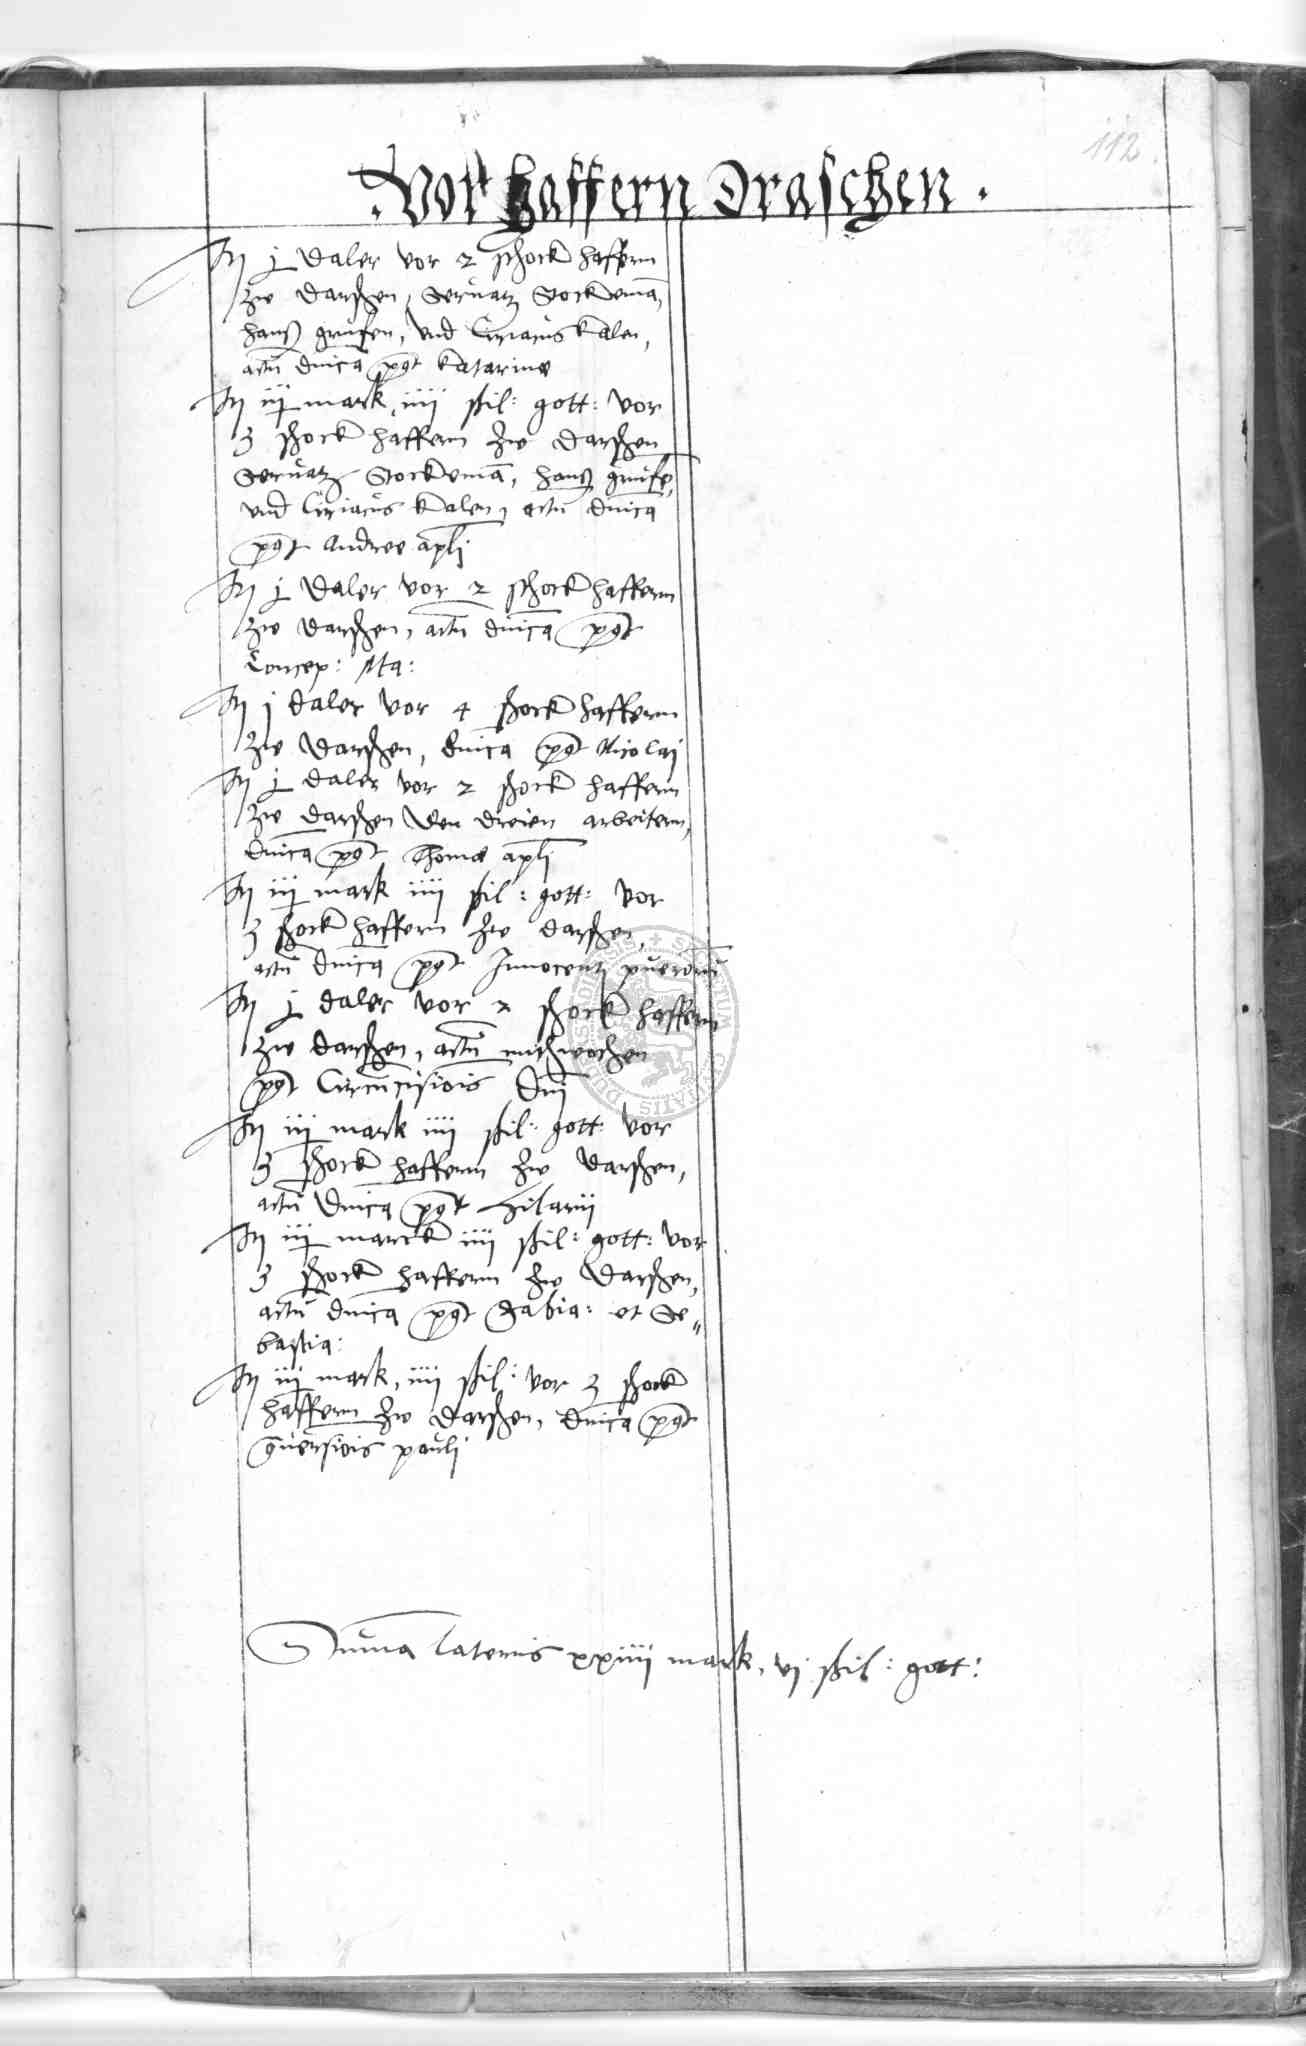 112
Vor haffern Draschen.
It j daler vor 2 schock haffern
zw darschen, Servatz Stockeman,
hans grusen, vnd Ciriacus Kalen,
actu dnica post Katarine
It iij mark, iiij schil: gott: vor
3 schock haffern zw darschen
Servatz Stockeman, hans gruse,
vnd Ciriacus Kalen, actu dnica
post Andree apli
It j daler vor 2 schock haffern
zw darschen, actu dnica post
Concep: Ma:
It j daler vor 4 schock haffern
zw darschen, dnica post Nicolai
It j daler vor 2 schock haffern
zw darschen den dreien arbeitern,
dnica post Thome apli
It iij mark iiij schil: gott: vor
3 schock haffern zw darschen,
actu dnica post Innocentz puerorum
It j daler vor 2 schock haffern
zw darschen, actu mitzwochen
post Circucisiois Dni
It iij mark iiij schil: gott: vor
3 schock haffern zw darschen,
actu dnica post Hilarii
It iij marck iiij schil: gott: vor
3 schock haffern zw darschen,
actu dnica post Fabia: et Se=
bastia:
It iij mark, iiij schil: vor 3 schock
haffern zw darschen, dnica post
conversiois pauli
Suma lateris xxiiij mark, vj schil: gott: